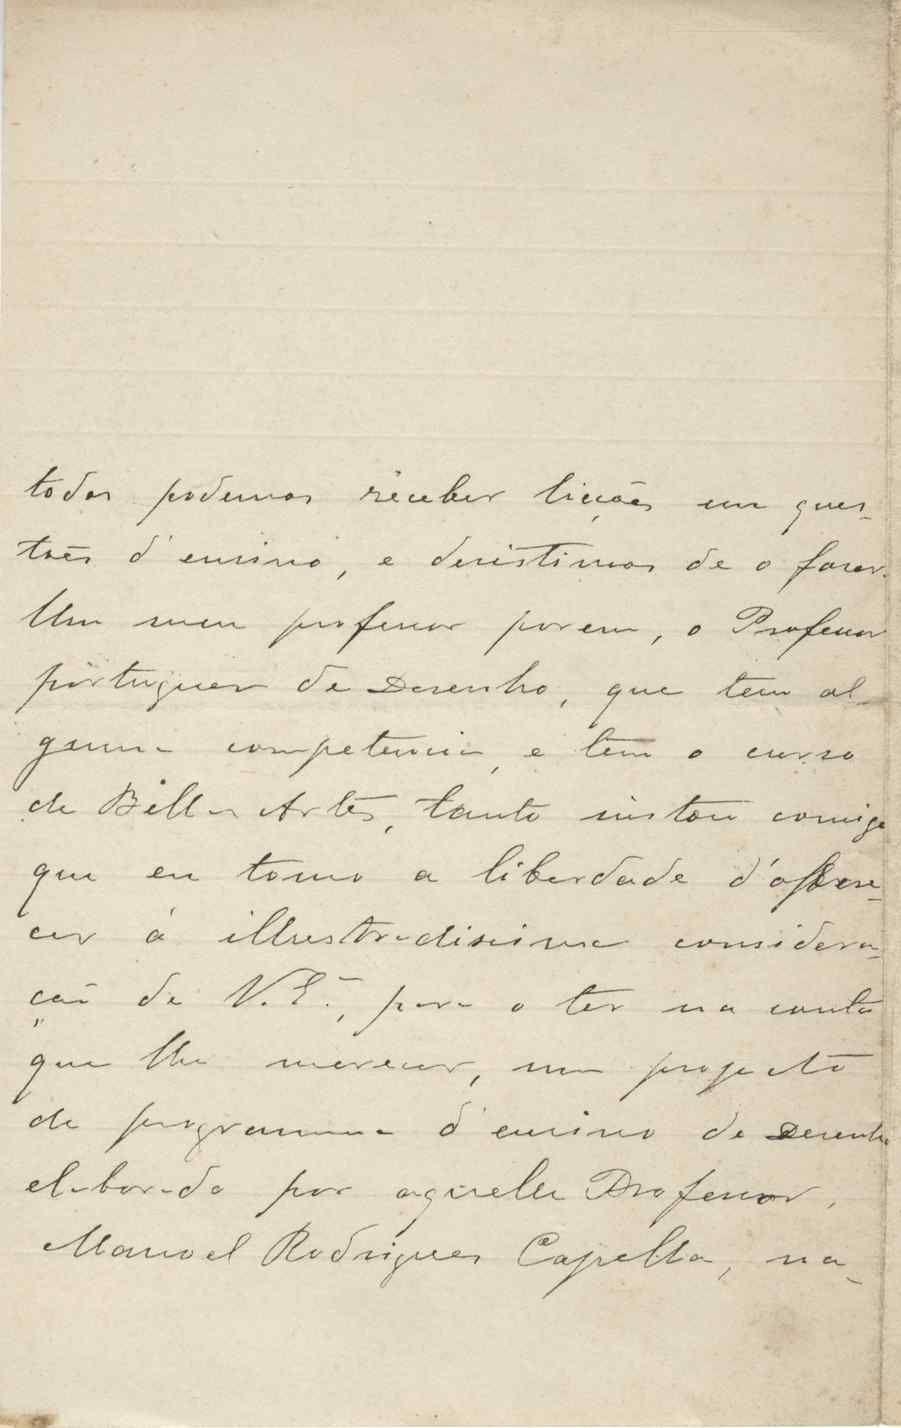 todos podemos receber licções em ques-
tões d'ensino, e desistimos de o fazer.
Um meu professor porem, o Professor
portuguez de Desenho, que tem al-
guma competencia, e tem o curso
de Bellas Artes, tanto instou comigo
que eu tomo a liberdade d'offere-
cer á illustradissima considera-
ção de V. Ex.ª, para o ter na conta
que lhe merecer, um projecto
de programma d'ensino de Desenho
elaborado por aquelle Professor,
Manoel Rodrigues Capella, na-